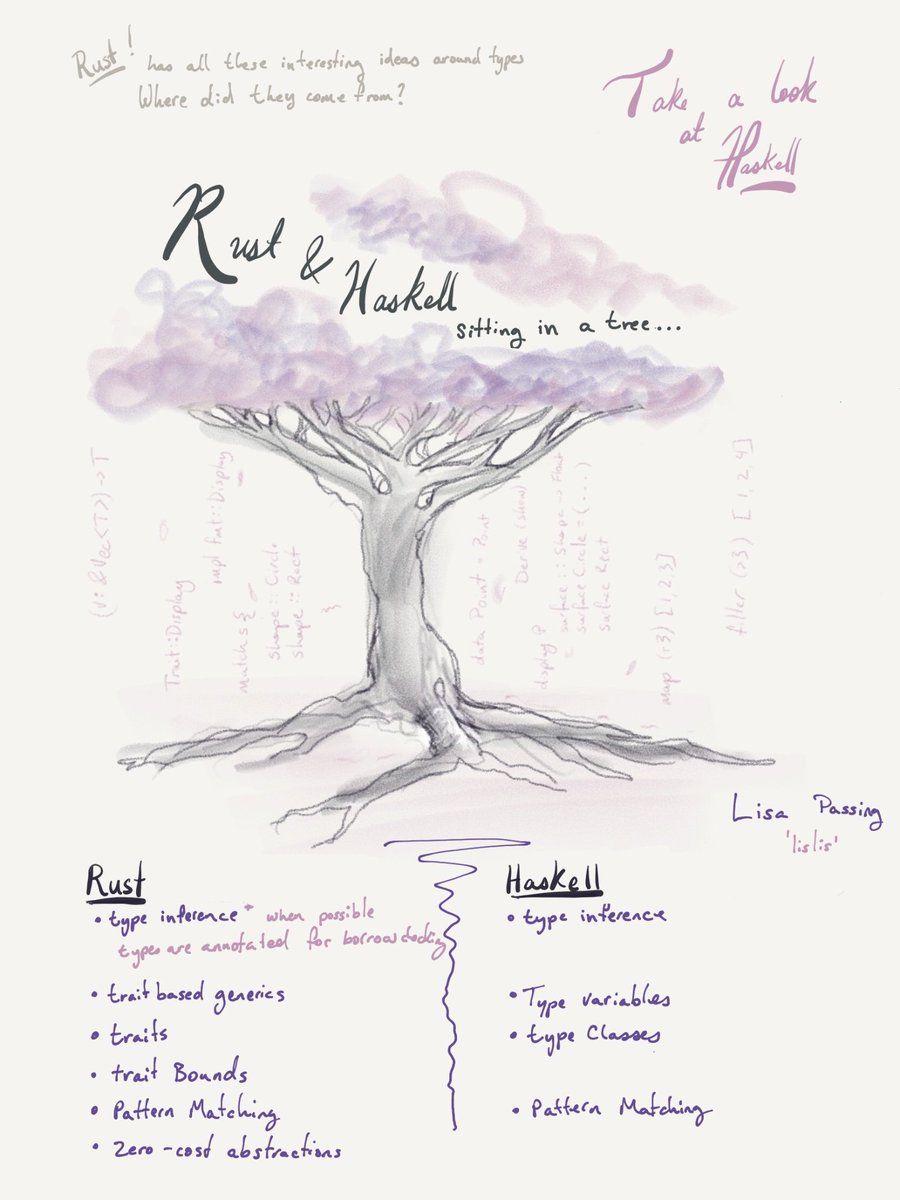 Rust! has all these interesting ideas around types
Where did they come from?
Take a look
at
Haskell
Rust & Haskell
sitting in a tree...
(v: &Vec<T>) -> T
Trait::Display
impl fmt::Display
match s {
shape :: Circle
shape :: Rect
}
data Point = Point
Derive (show)
display p
surface :: Shape -> Float
surface Circle = (...)
surface Rect
}
map (r3) [1,2,3]
}
filter (>3) [1,2,4]
Lisa Passing
'lislis'
Rust
• type inference * when possible
types are annotated for borrowchecking
• trait based generics
• traits
• trait Bounds
• Pattern Matching
• Zero-cost abstractions
Haskell
• type inference
• Type variables
• type Classes
• Pattern Matching